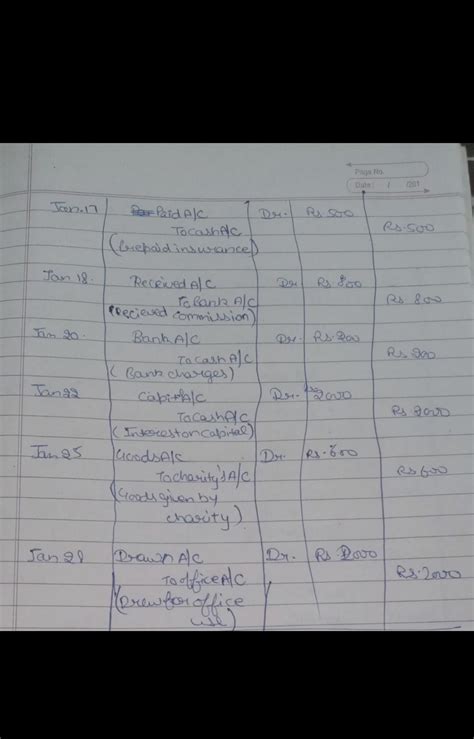 Page No.
Date / /201
Jan.17 Paid A/C Dr. Rs 500
To cash A/C Rs.500
(Prepaid insurance)
Jan 18. Received A/C Dr Rs 800
To Bank A/C Rs 800
(Recieved commission)
Jan 20. Bank A/C Dr. Rs.200
To Cash A/C Rs 200
(Bank charges)
Jan 22 Capital A/C Dr. Rs 2000
To Cash A/C Rs 2000
(Interest on capital)
Jan 25 Goods A/C Dr. Rs.600
To charity's A/C Rs 600
(Goods given by
charity)
Jan 28 Drawn A/C Dr. Rs 2000
To office A/C Rs.2000
(Drew for office
use)